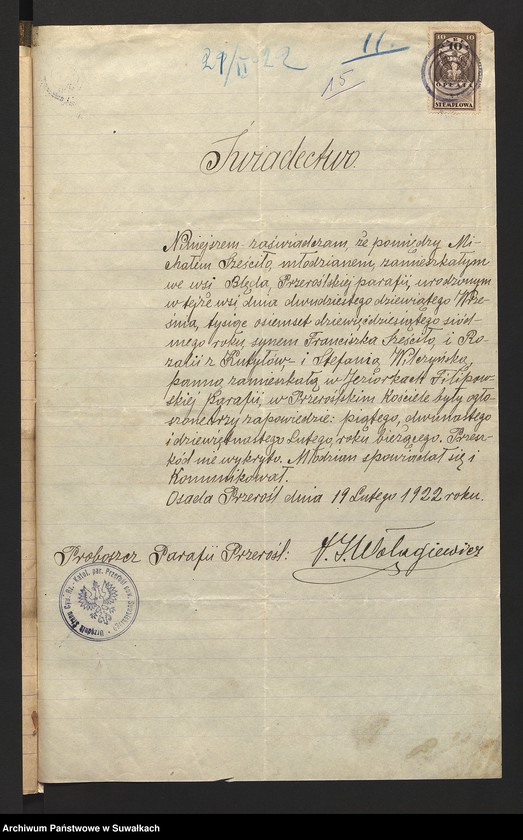 21/II-22
11.
15
10 10
10
OPŁATA
STEMPLOWA
Świadectwo.
Niniejszem zaświadczam, że pomiędzy Mi-
chałem Sześciło, młodzianem, zamieszkałym
we wsi Błęda, Przeroślskiej parafii, urodzonym
w tejże wsi dnia dwudziestego dziewiątego Wrze-
śnia, tysiąc osiemset dziewięćdziesiątego siód-
mego roku, synem Franciszka Sześciło i Ro-
zalii z Kutyłów i Stefanią Wilczyńską,
panną zamieszkałą w Jeziorkach Filipow-
skiej Parafii, w Przeroślskim Kościele były ogło-
szone trzy zapowiedzie: piątego, dwunastego
i dziewiętnastego Lutego, roku bieżącego. Przesz-
kód nie wykryto. Młodzian spowiadał się i
Komunikował.
Osada Przerośl dnia 19 Lutego 1922 roku.
Proboszcz Parafii Przerośl:
Wołągiewicz
Urzędnik Stanu Cyw. Rz.-Katol. par. Przerośl pow. Suwalskiego
Archiwum Państwowe w Suwałkach